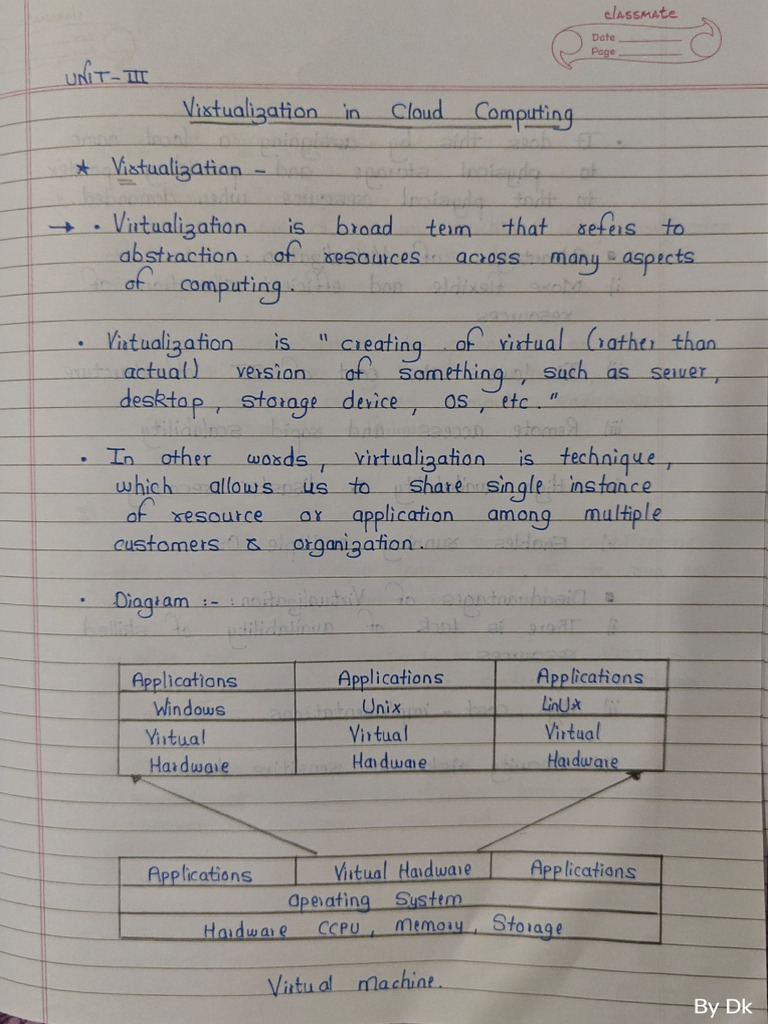 classmate
Date
Page
UNIT-III
Virtualization in Cloud Computing
★ Virtualization –
→ • Virtualization is broad term that refers to
abstraction of resources across many aspects
of computing.
• Virtualization is " creating of virtual (rather than
actual) version of something, such as server,
desktop, storage device, OS, etc."
• In other words, virtualization is technique,
which allows us to share single instance
of resource or application among multiple
customers & organization.
• Diagram :-
Applications Applications Applications
Windows Unix LinUx
Virtual Virtual Virtual
Hardware Hardware Hardware
Applications Virtual Hardware Applications
Operating System
Hardware CCPU, Memory, Storage
Virtual machine.
By Dk